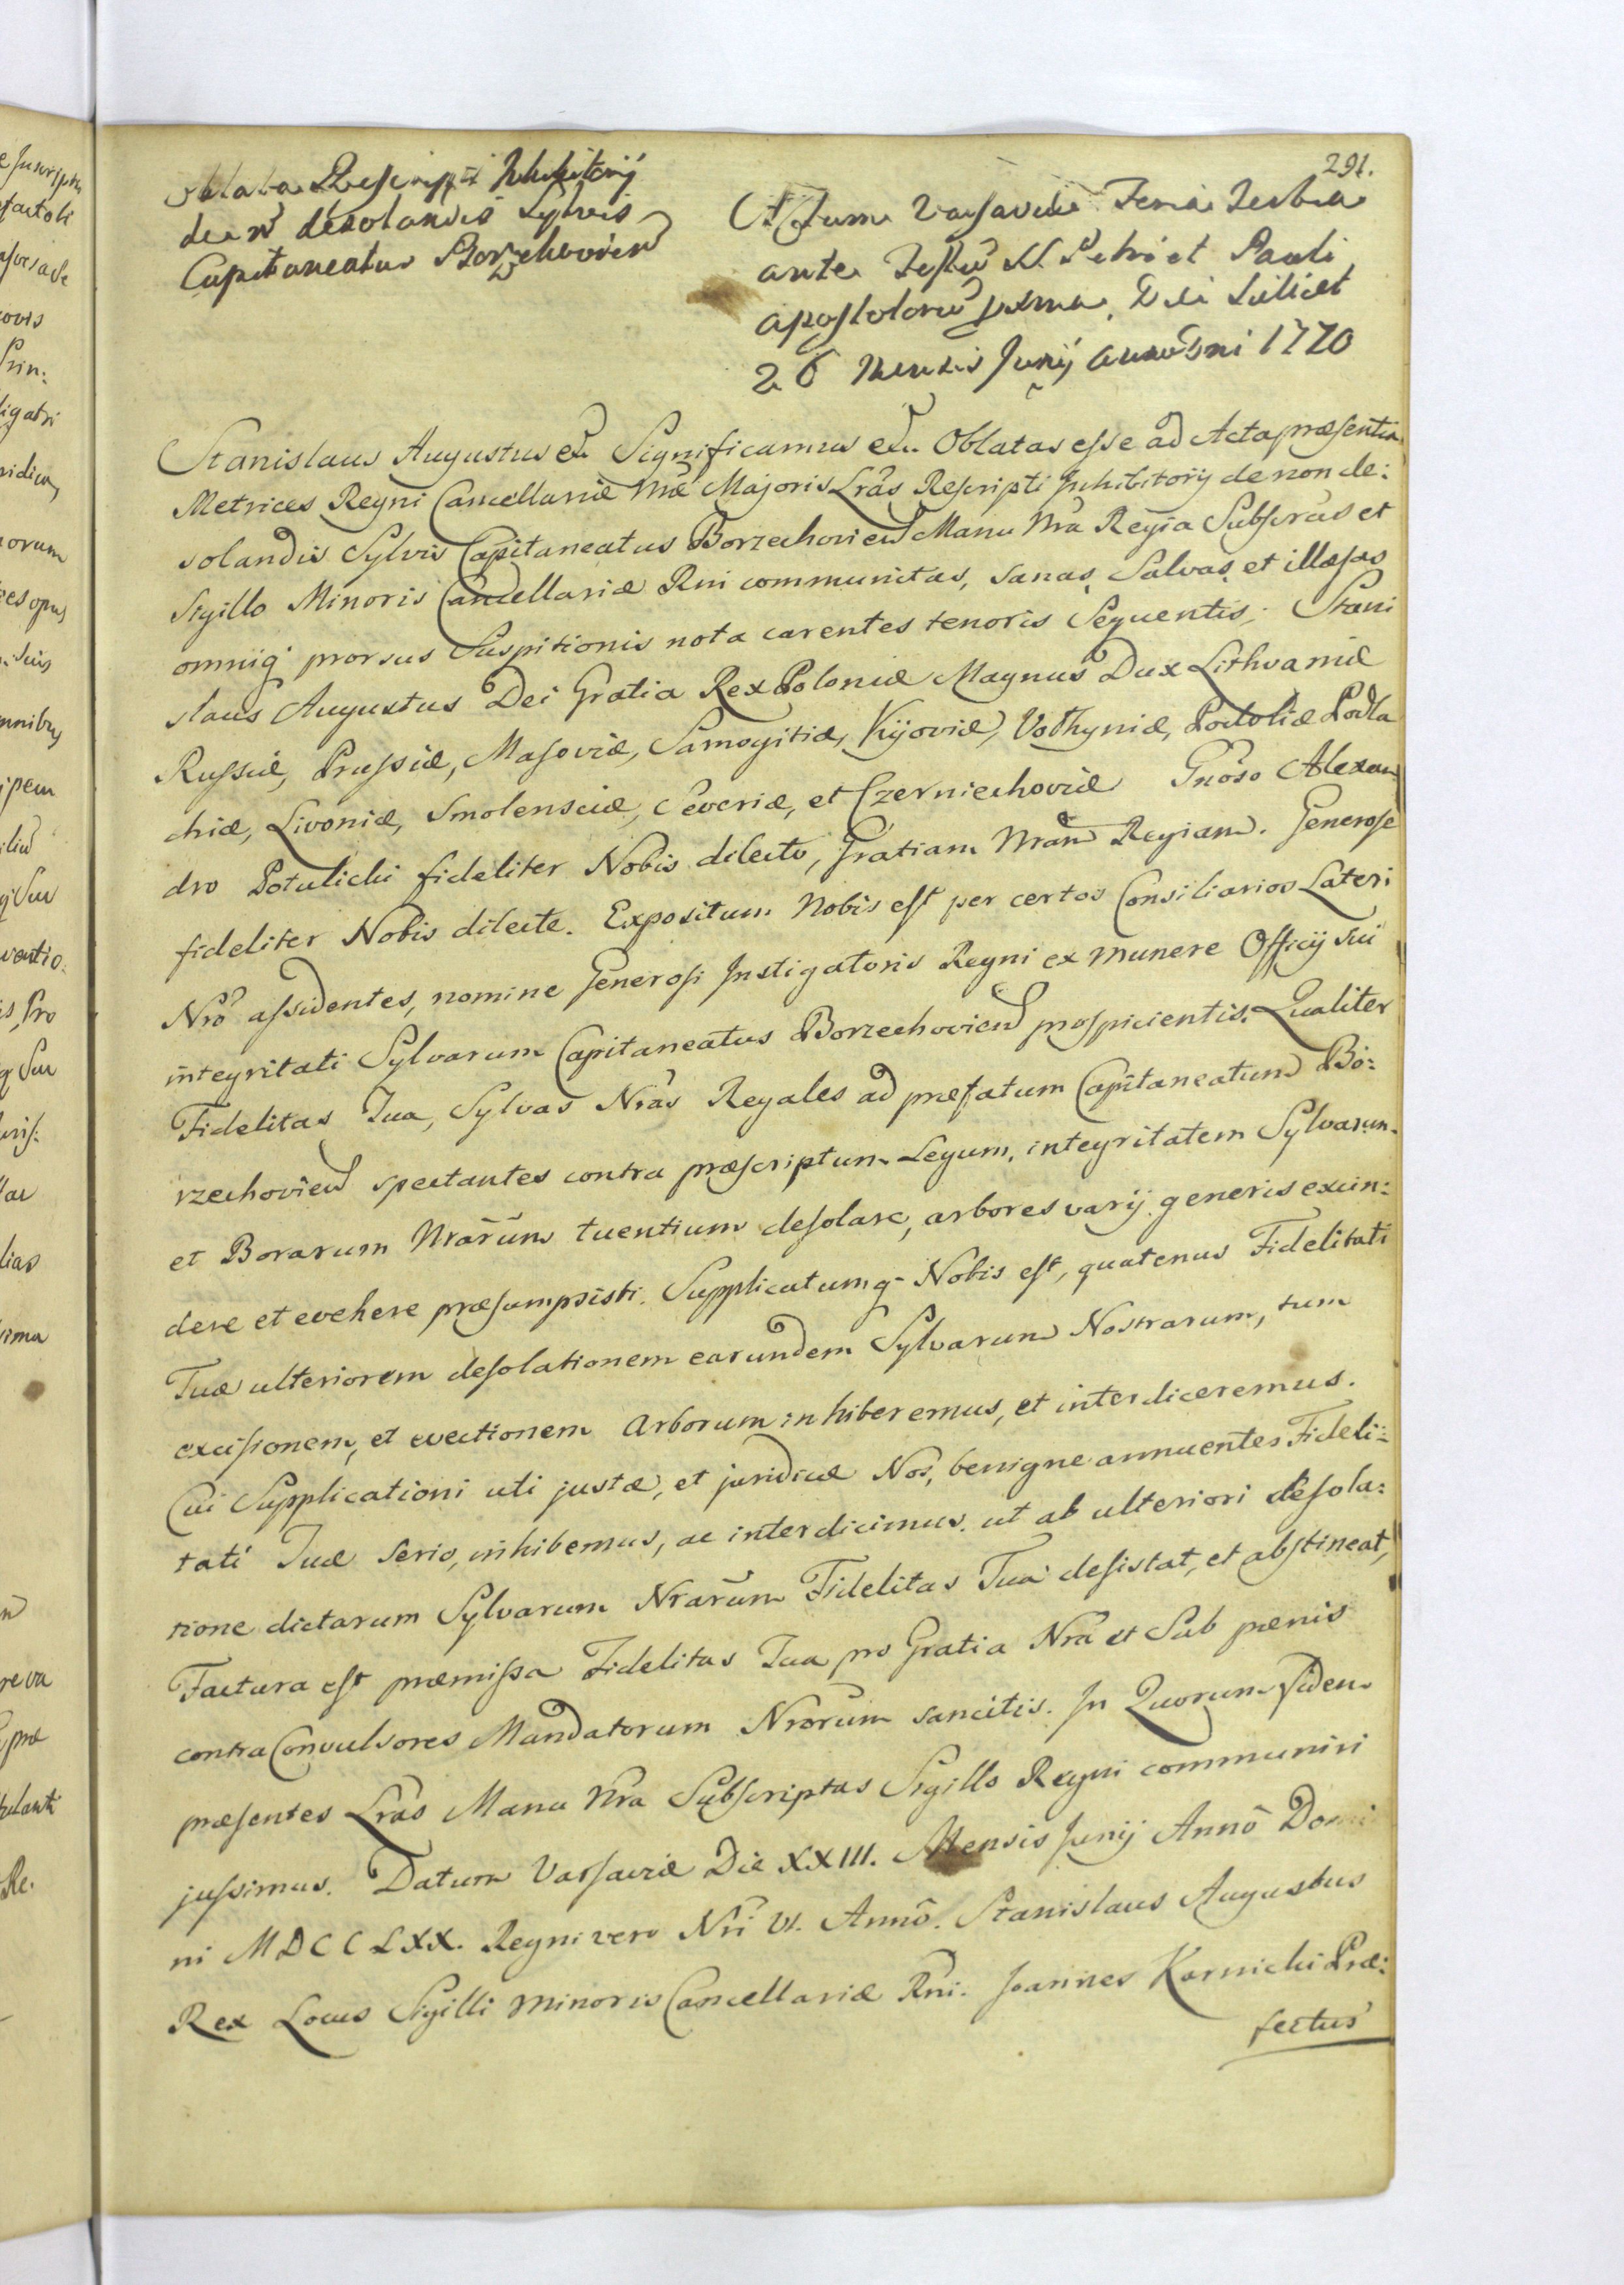 291.
Oblata Rescripti Inhibitorij
de ñ desolandis Sylvis
Capitaneatus Borzechovien
Actum Varsaviæ Feria Tertia
ante Festũ SS. Petri et Pauli
Apostolorũ proxima, Die scilicet
26 Mensis Junij Anno Dni 1770
Stanislaus Augustus etc. Significamus etc. Oblatas esse ad Acta præsentia
Metrices Regni Cancellariæ Nræ Majoris Lrãs Rescripti Inhibitorij de non de:
solandis Sylvis Capitaneatus Borzechovien Manu Nra Regia Subscrãs et
Sigillo Minoris Cancellariæ Rni communitas, sanas, Salvas, et illæsas
omniq prorsus Suspitionis nota carentes tenoris Sequentis. Stani
slaus Augustus Dei Gratia Rex Poloniæ Magnus Dux Lithvaniæ
Russiæ, Prussiæ, Masoviæ, Samogitiæ, Kijoviæ, Volhyniæ, Podoliæ Podla
chiæ, Livoniæ, Smolensciæ, Severiæ, et Czerniechoviæ Gnõso Alexan
dro Potulicki fideliter Nobis dilecto, Gratiam Nram Regiam. Generose
fideliter Nobis dilecte. Expositum Nobis est per certos Consiliarios Lateri
Nrõ assidentes, nomine Generosi Instigatoris Regni ex munere Officij sui
integritati Sylvarum Capitaneatus Borzechovien prospicientis. Qualiter
Fidelitas Tua, Sylvas Nrãs Regales ad præfatum Capitaneatum Bo:
rzechovien spectantes contra præscriptum Legum, integritatem Sylvarum
et Borarum Nrãrum tuentium desolare, arbores varij generis excin:
dere et evehere præsumpsisti. Supplicatumq Nobis est, quatenus Fidelitati
Tuæ ulteriorem desolationem earundem Sylvarum Nostrarum, tum
excisionem, et evectionem Arborum inhiberemus, et interdiceremus.
Cui Supplicationi uti justæ, et juridicæ Nos, benigne annuentes Fideli:
tati Tuæ serio, inhibemus, ac interdicimus. ut ab ulteriori desola:
tione dictarum Sylvarum Nrarum Fidelitas Tua desistat, et abstineat,
Factura est præmissa Fidelitas Tua pro Gratia Nrã et Sub pænis
contra Convulsores Mandatorum Nrorum sancitis. In Quorum fidem
præsentes Lrãs Manu Nra Subscriptas Sigillo Regni communiri
jussimus. Datum Varsaviæ Die XXIII. Mensis Junij Annõ Domi
ni MDCCLXX. Regni vero Nri VI. Annõ. Stanislaus Augustus
Rex Locus Sigilli Minoris Cancellariæ Rni. Joannes Karnicki Præ:
fectus